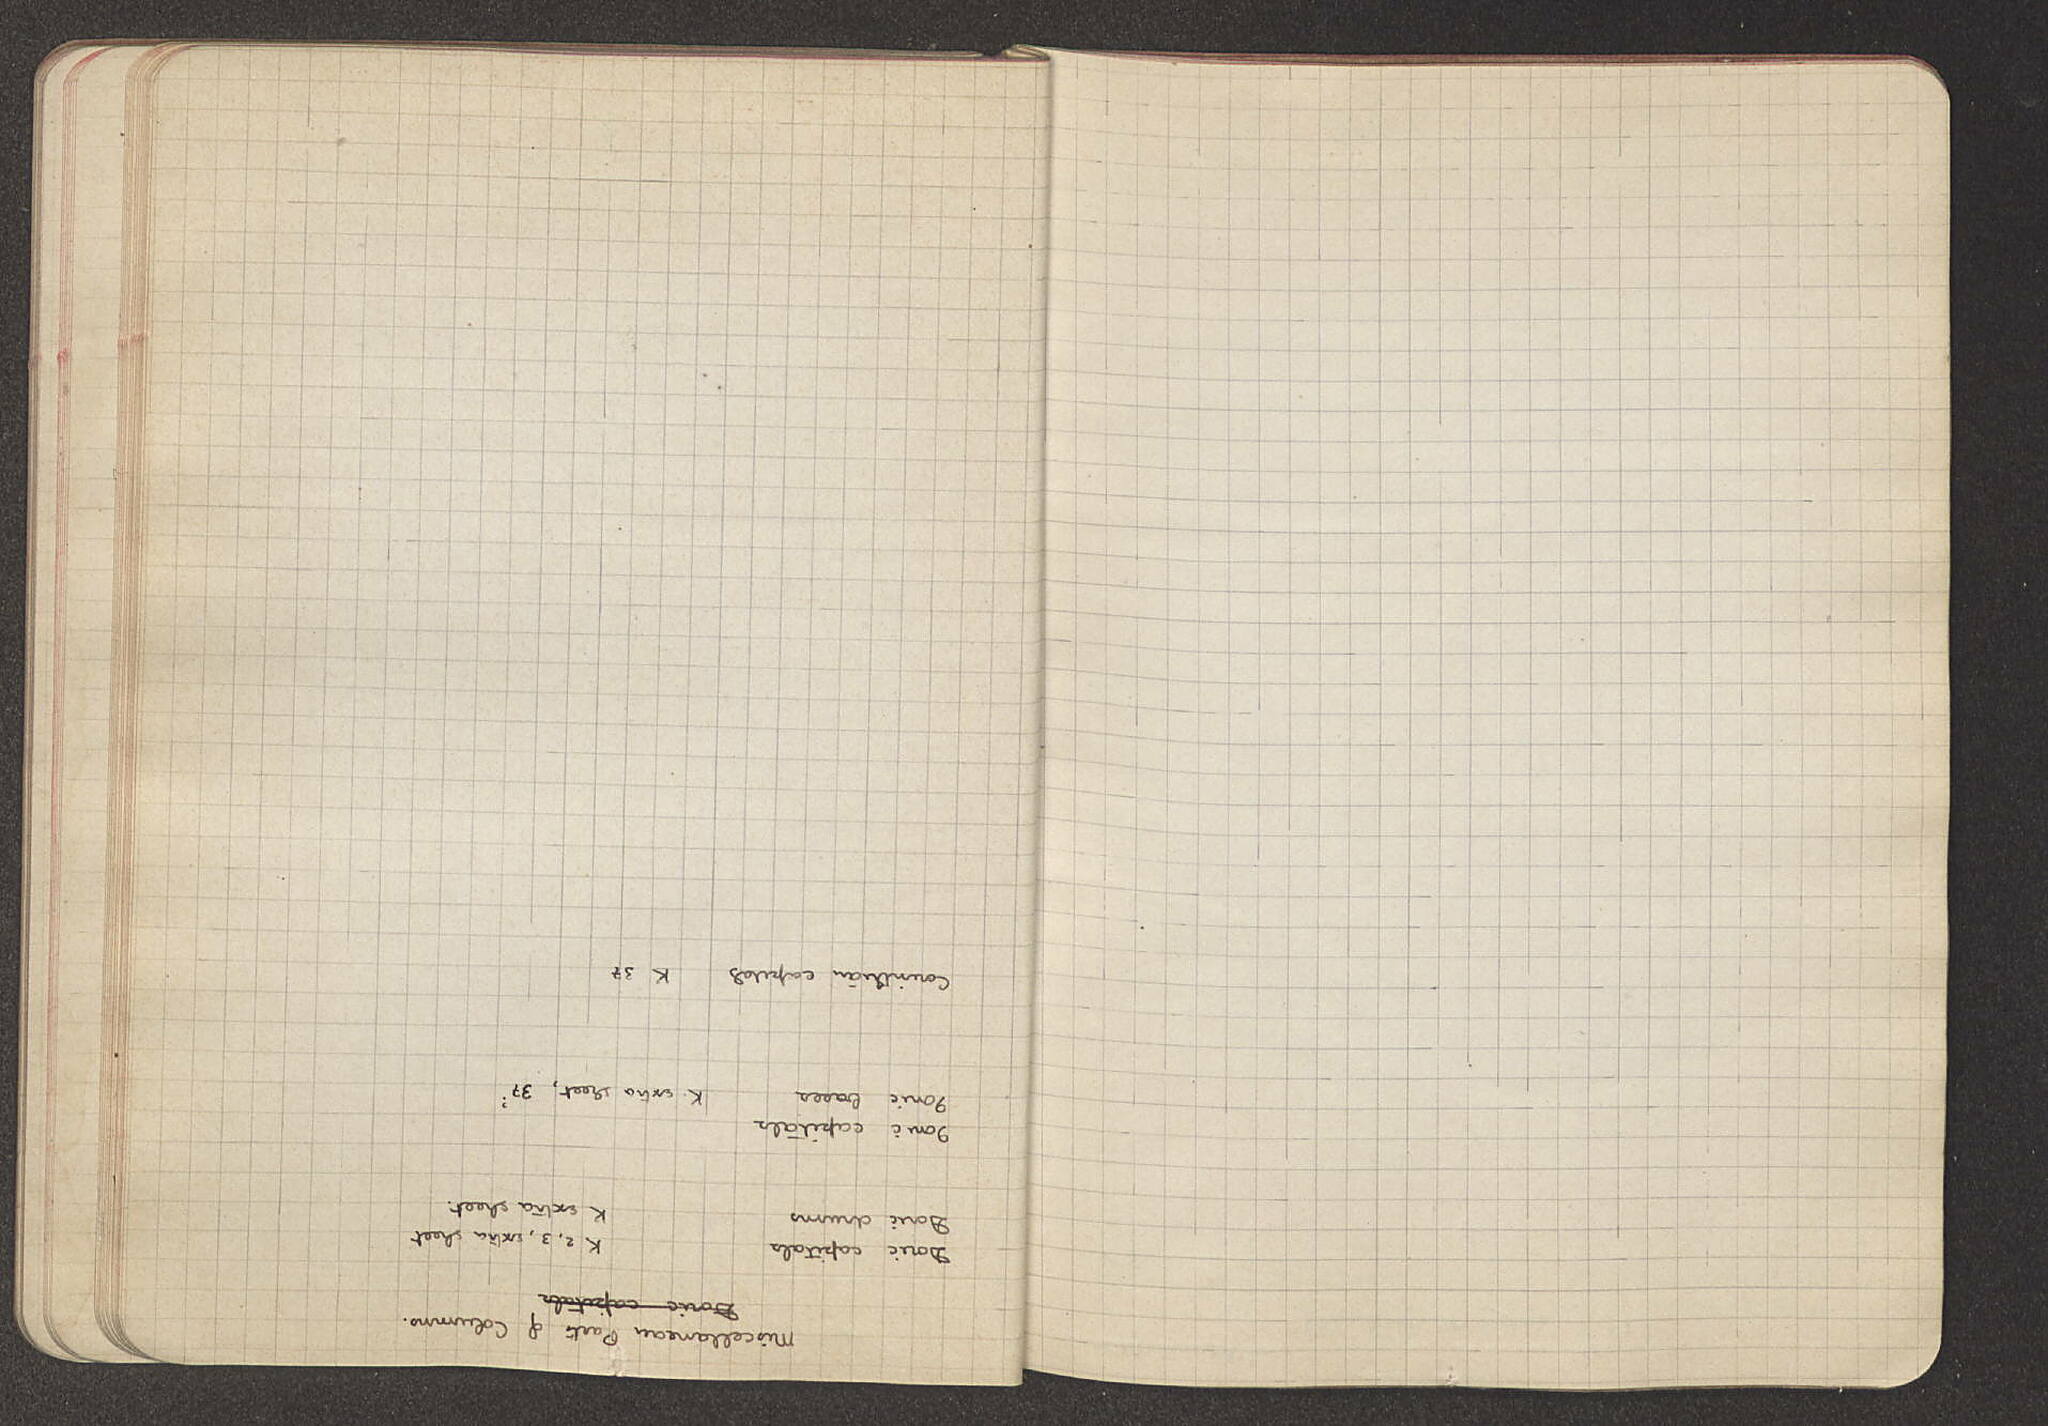 Miscellaneous Parts of Columns.
Doric capitals
Doric capitals K 2, 3, extra sheet
Doric drums K extra sheet.
Ionic capitals
Ionic bases K extra sheet, 37?
Corinthian capitals K 37